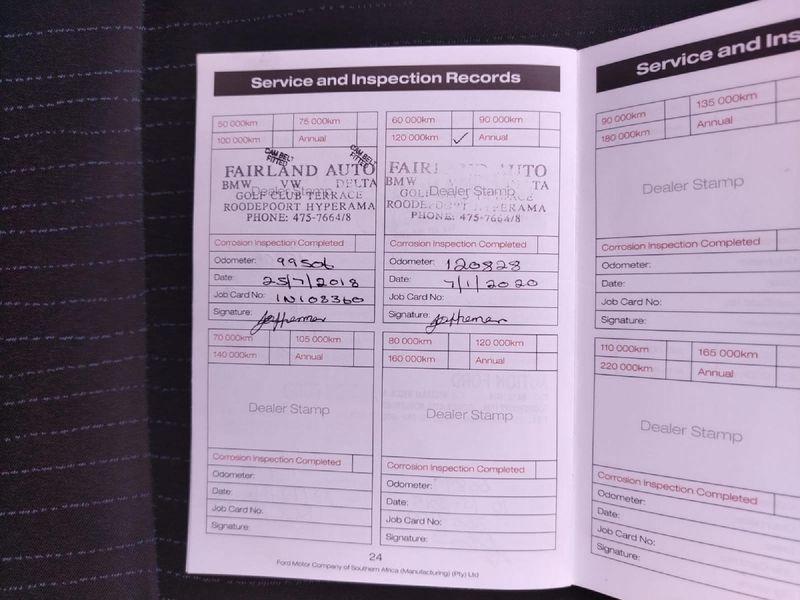 Service and Inspection Records
50 000km 75 000km
100 000km Annual
CAM BELT
FITTED
CAM BELT
FITTED
FAIRLAND AUTO
BMW VW DELTA
Dealer Stamp
GOLF CLUB TERRACE
ROODEPOORT HYPERAMA
PHONE: 475-7664/8
Corrosion Inspection Completed
Odometer: 99506
Date: 25/7/2018
Job Card No: IN103360
Signature:
60 000km 90 000km
120 000km ✓ Annual
FAIRLAND AUTO
BMW TA
Dealer Stamp
ROODEPOORT HYPERAMA
PHONE: 475-7664/8
Corrosion Inspection Completed
Odometer: 120828
Date: 7/1/2020
Job Card No:
Signature:
70 000km 105 000km
140 000km Annual
Dealer Stamp
Corrosion Inspection Completed
Odometer:
Date:
Job Card No.
Signature:
80 000km 120 000km
160 000km Annual
Dealer Stamp
Corrosion Inspection Completed
Odometer:
Date:
Job Card No.
Signature:
24
Ford Motor Company of Southern Africa (Manufacturing) (Pty) Ltd
Service and Ins
90 000km 135 000km
180 000km Annual
Dealer Stamp
Corrosion Inspection Completed
Odometer:
Date:
Job Card No:
Signature:
110 000km 165 000km
220 000km Annual
Dealer Stamp
Corrosion Inspection Completed
Odometer:
Date:
Job Card No:
Signature: